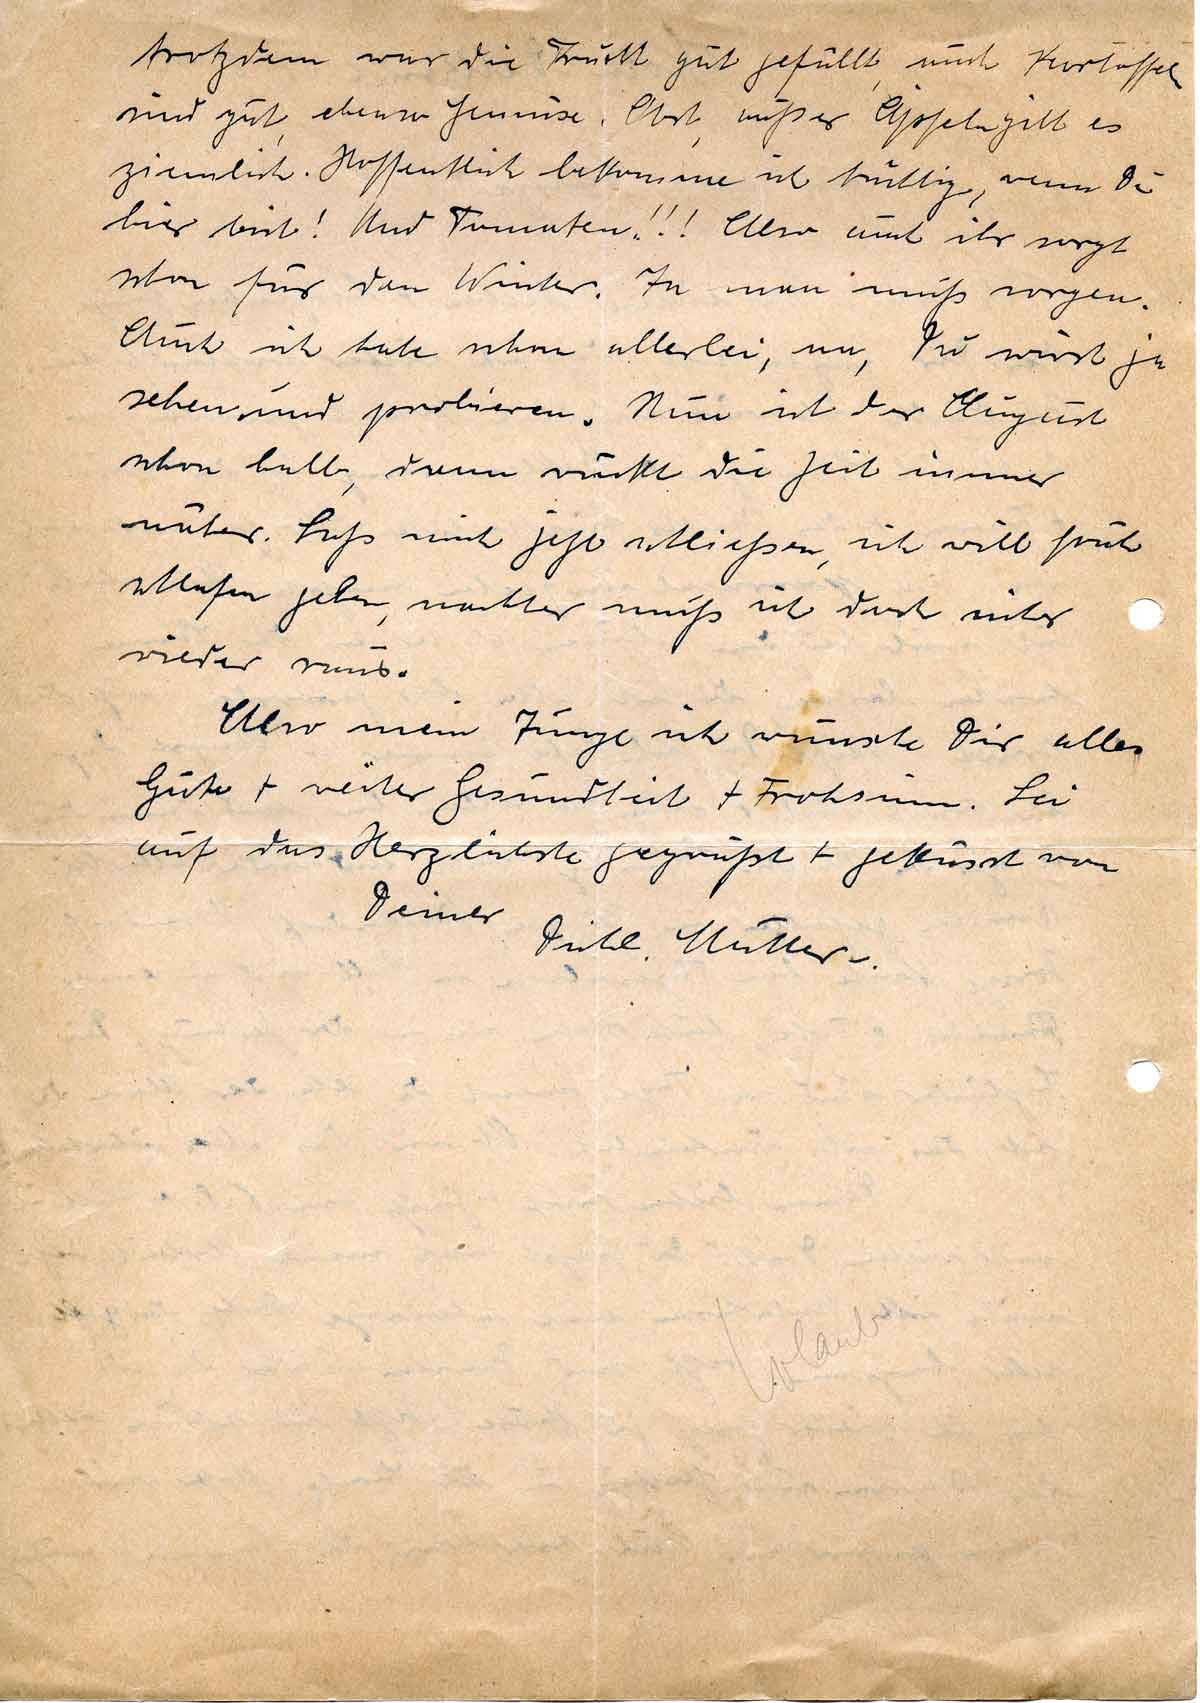 trotzdem war die Frucht gut gefüllt, auch Kartoffeln
sind gut, ebenso Gemüse. Obst, außer Äpfeln gibt es
ziemlich. Hoffentlich bekomme ich tüchtig, wenn Du
hier bist! Und Tomaten!!! Also auch ihr sorgt
schon für den Winter. Ja man muß sorgen.
Auch ich habe schon allerlei, na, Du wirst ja
sehen und probieren. Nun ist der August
schon halb, dann rückt die Zeit immer
näher. Laß mich jetzt schließen, ich will früh
schlafen gehen, nachher muß ich doch sicher
wieder raus.
Also mein Junge ich wünsche Dir alles
Gute + weiter Gesundheit + Frohsinn. Sei
auf das Herzlichste gegrüßt + geküsst von
Deiner
Dichl. Mutter.
Urlaub